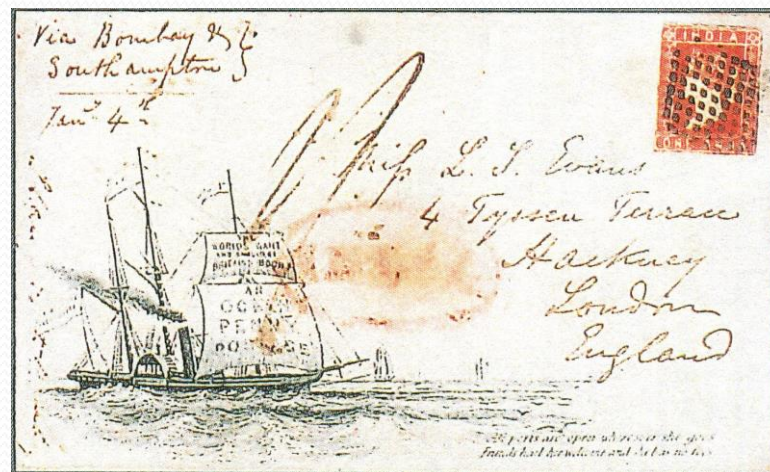 Via Bombay &
Southampton
Jany 4th
INDIA
ONE
Miss L. S. Evans
4 Tyssen Terrace
Hackney
London
England
THE
WORLD'S WANT
AND SHOULD BE
BRITAIN'S BOON
AN
OCEAN
PENNY
POSTAGE
All ports are open wheresoe'er she goes
Friends hail her welcome and she has no foes